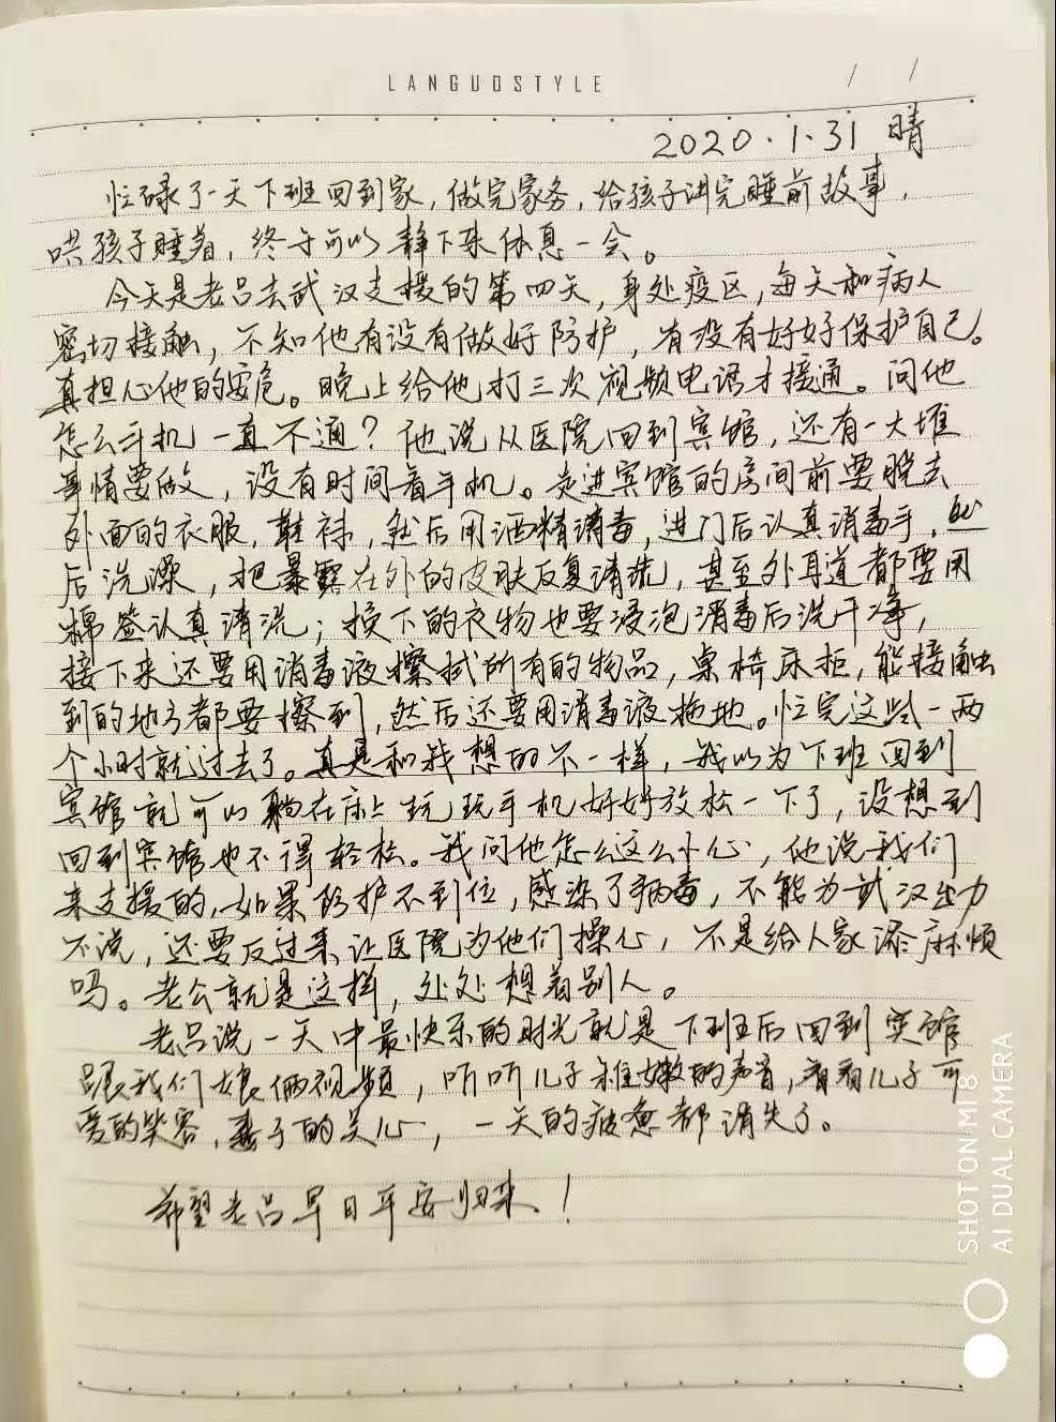 LANGUOSTYLE
/ /
2020.1.31 晴
忙碌了一天下班回到家，做完家务，给孩子讲完睡前故事，
哄孩子睡着，终于可以静下来休息一会。
今天是老吕去武汉支援的第四天，身处疫区，每天和病人
密切接触，不知他有没有做好防护，有没有好好保护自己。
真担心他的安危。晚上给他打三次视频电话才接通。问他
怎么手机一直不通？他说从医院回到宾馆，还有一大堆
事情要做，没有时间看手机。走进宾馆的房间前要脱去
外面的衣服，鞋袜，然后用酒精消毒，进门后认真消毒手，然
后洗澡，把暴露在外的皮肤反复清洗，甚至外耳道都要用
棉签认真清洗；换下的衣物也要浸泡消毒后洗干净，
接下来还要用消毒液擦拭所有的物品，桌椅床柜，能接触
到的地方都要擦到，然后还要用消毒液拖地。忙完这些一两
个小时就过去了。真是和我想的不一样，我以为下班回到
宾馆就可以躺在床上玩玩手机好好放松一下了，没想到
回到宾馆也不得轻松。我问他怎么这么小心，他说我们
来支援的，如果防护不到位，感染了病毒，不能为武汉出力
不说，还要反过来让医院为他们操心，不是给人家添麻烦
吗。老公就是这样，处处想着别人。
老吕说一天中最快乐的时光就是下班后回到宾馆
跟我们娘俩视频，听听儿子稚嫩的声音，看看儿子可
爱的笑容，妻子的关心，一天的疲惫都消失了。
希望老吕早日平安归来！
SHOT ON MI 8
AI DUAL CAMERA